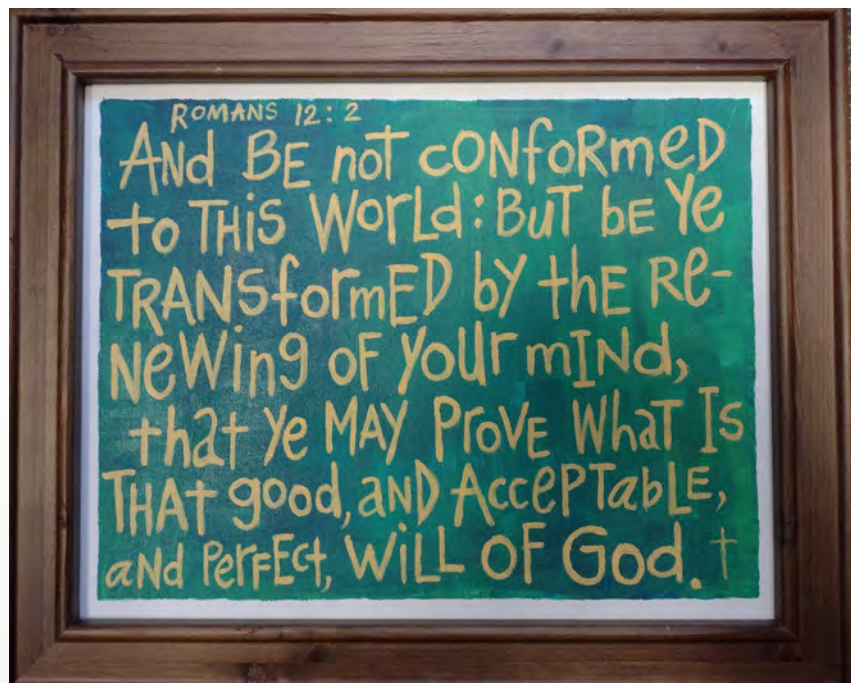 ROMANS 12:2
ANd BE not cONfoRmeD
to THiS WorLd: BuT bE Ye
TRANSformED bY thE Re-
NeWing oF your mINd,
that Ye MAY ProVE WhaT Is
THAt good, aND AccePTabLE,
aNd PerFEct, WiLL OF God. †